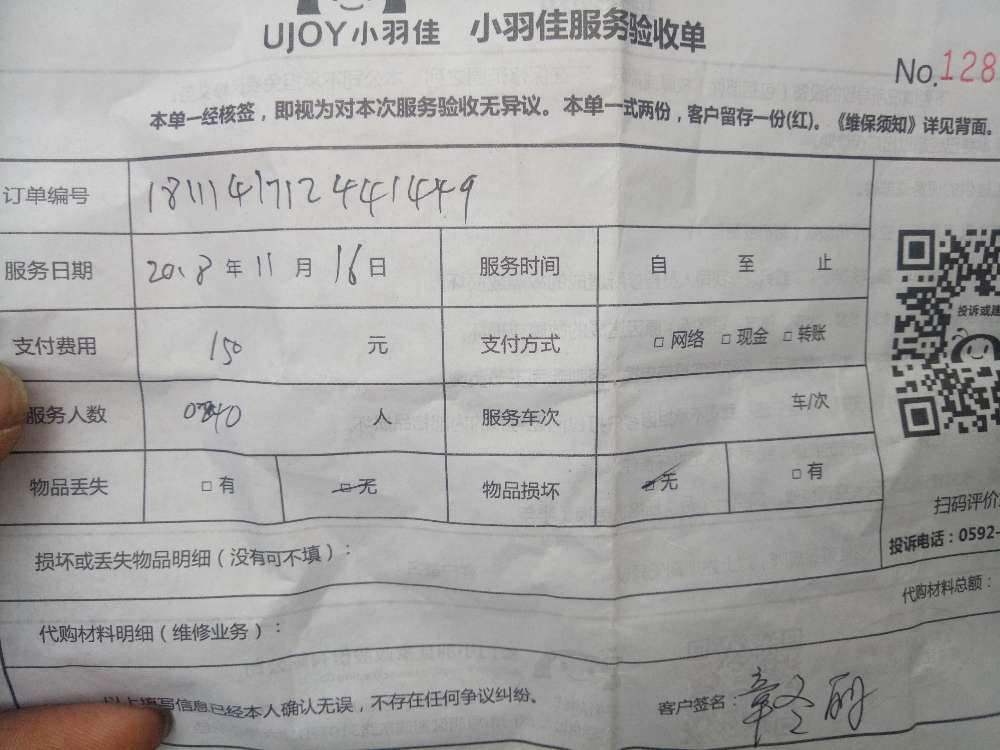 UJOY小羽佳 小羽佳服务验收单
No.128
本单一经核签，即视为对本次服务验收无异议。本单一式两份，客户留存一份(红)。《维保须知》详见背面。
订单编号 1811141712441449
服务日期 2018年11月16日 服务时间 自 至 止
支付费用 150 元 支付方式 □网络 □现金 □转账
服务人数 人 服务车次 车/次
投诉或建
物品丢失 □有 □无 物品损坏 □无 □有
扫码评价
投诉电话：0592-
损坏或丢失物品明细（没有可不填）：
代购材料总额：
代购材料明细（维修业务）：
以上填写信息已经本人确认无误，不存在任何争议纠纷。
客户签名：